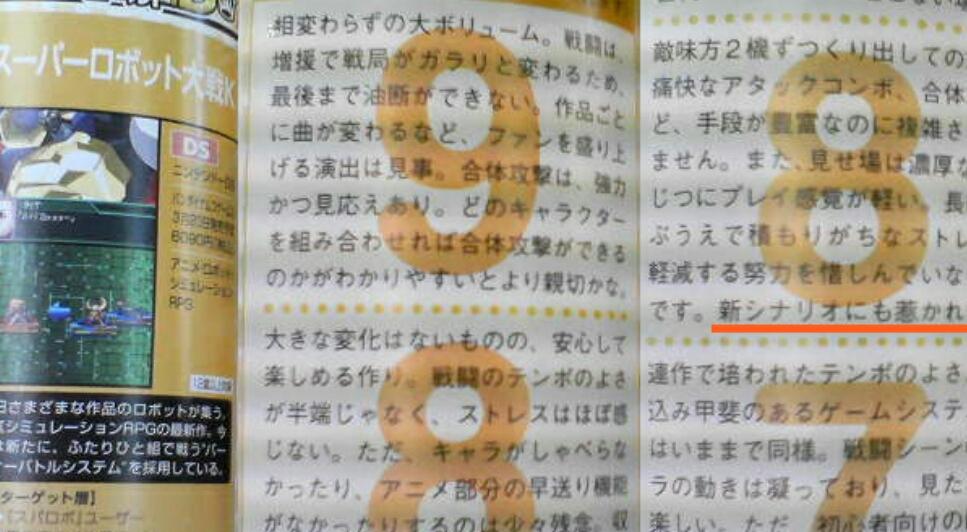 スーパーロボット大戦K
DS
アニメ・ロボット
シミュレーション
RPG
さまざまな作品のロボットが集う、
シミュレーションRPGの最新作。今
新たに、ふたりひと組で戦う“パー
ーバトルシステム”を採用している。
ターゲット層】
『スパロボ』ユーザー
9
相変わらずの大ボリューム。戦闘は、
増援で戦局がガラリと変わるため、
最後まで油断ができない。作品ごと
に曲が変わるなど、ファンを盛り上
げる演出は見事。合体攻撃は、強力
かつ見応えあり。どのキャラクター
を組み合わせれば合体攻撃ができる
のかがわかりやすいとより親切かな。
8
大きな変化はないものの、安心して
楽しめる作り。戦闘のテンポのよさ
が半端じゃなく、ストレスはほぼ感
じない。ただ、キャラがしゃべらな
かったり、アニメ部分の早送り機能
がなかったりするのは少々残念。収
8
敵味方2機ずつくり出しての
痛快なアタックコンボ、合体
ど、手段が豊富なのに複雑さ
ません。また、見せ場は濃厚な
じつにプレイ感覚が軽い。長
ぶうえで積もりがちなストレ
軽減する努力を惜しんでいな
です。新シナリオにも惹かれ
7
連作で培われたテンポのよさ
込み甲斐のあるゲームシステ
はいままで同様。戦闘シーン
ラの動きは凝っており、見た
楽しい。ただ、初心者向けの